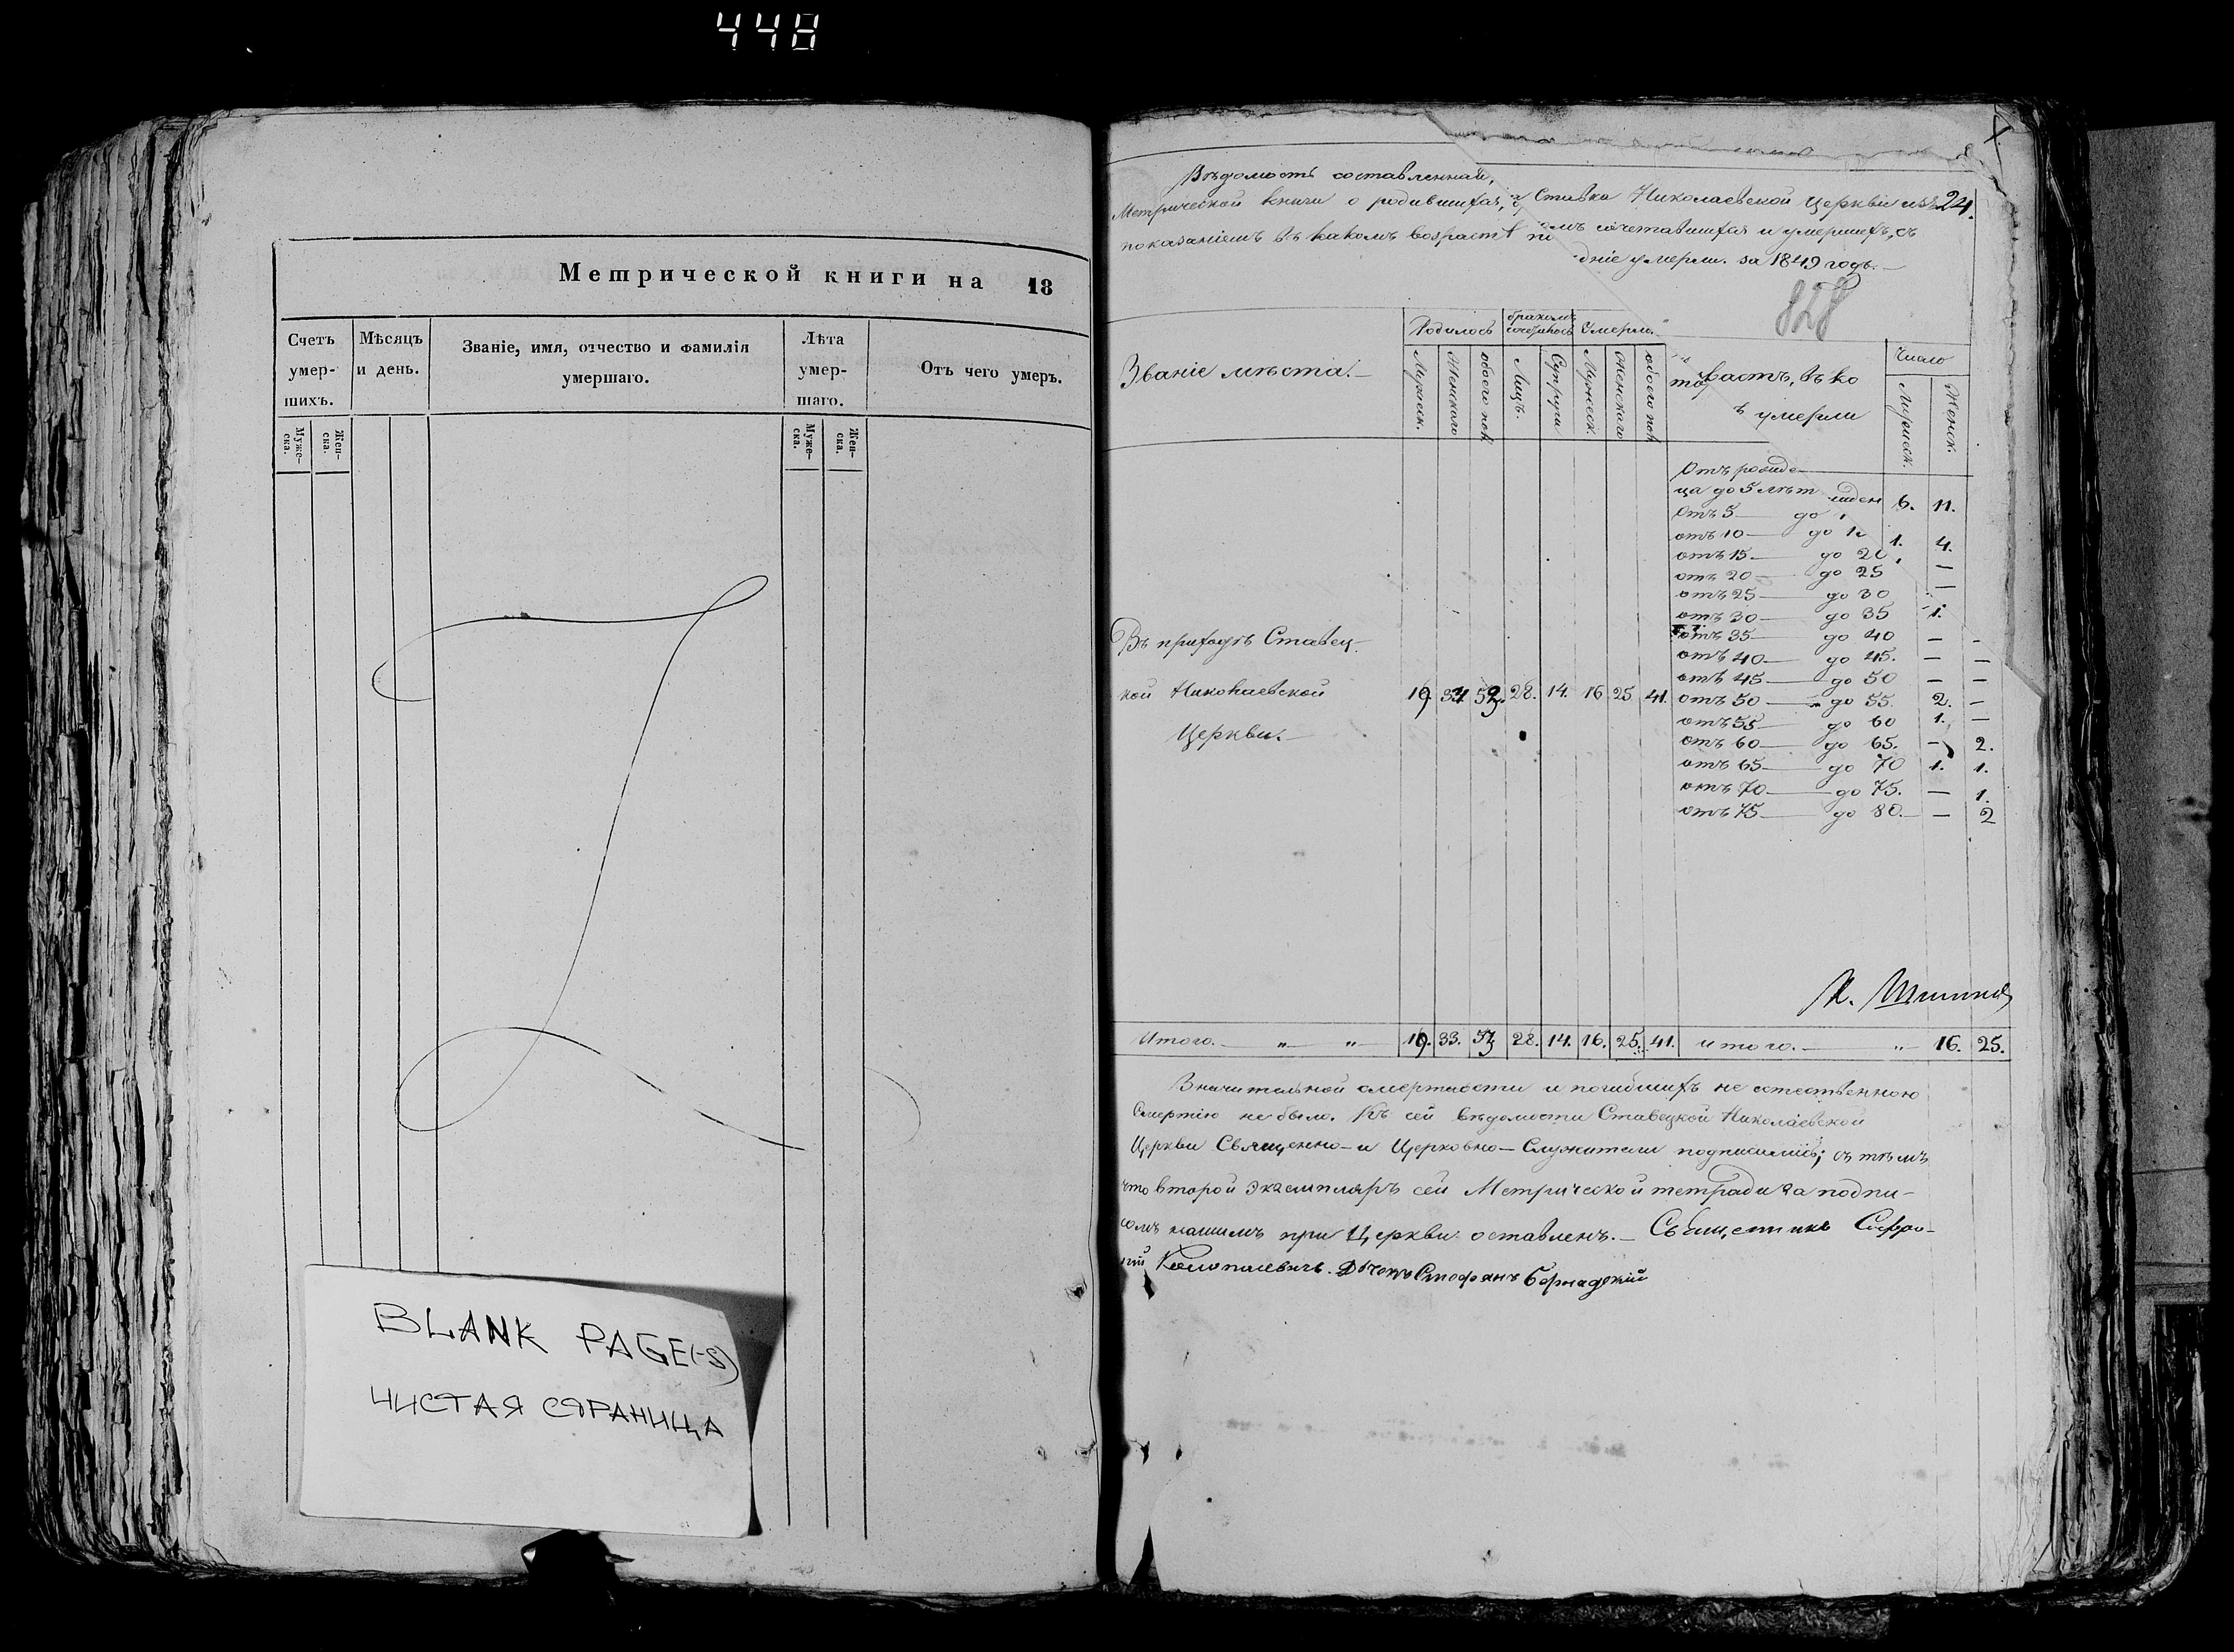 448
Метрической книги на 18
Счетъ умер-шихъ.
Мѣсяцъ и день.
Званіе, имя, отчество и фамилія умершаго.
Лѣта умер-шаго.
Отъ чего умеръ.
Муже-ска.
Жен-ска.
Муже-ска.
Жен-ска.
BLANK PAGE(-S)
ЧИСТАЯ СТРАНИЦА
Вѣдомость составленная,
Метрической книги о родившихся, Ставка Николаевской Церкви изъ 24.
показаніемъ въ какомъ возрастѣ сочетавшихся и умершихъ, съ
умерли. за 1849 годъ.—
828
Званіе мѣста.—
Родилось
бракомъ сочеталось
Умерло.
Мужеск.
Женскаго
обоего пол
Лицъ.
Супруги
Мужеск.
Женскаго
обоего пол
растъ, въ ко
умерли
Число
Мужеск.
Женск.
Отъ рожде—
ца до 5 лѣт 6. 11.
Отъ 5 — до
отъ 10 — до 1. 4.
отъ 15 — до 20
отъ 20 — до 25 —
отъ 25 — до 30 —
отъ 30 — до 35 1.
отъ 35 — до 40 — -
отъ 40 — до 45. — —
отъ 45 — до 50 — —
отъ 50 — до 55. 2. -
отъ 55 — до 60 1. —
отъ 60 — до 65. — 2.
отъ 65 — до 70 1. 1.
отъ 70 — до 75. — 1.
отъ 75 — до 80. — 2
Въ приходѣ Ставец-
кой Николаевской 19. 34 53. 28. 14. 16 25 41.
Церкви.—
Итого. — „ — „ — 19. 33. 53 28. 14. 16. 25. 41. итого. — „ 16. 25.
Значительной смертности и погибшихъ не естественною
Смертію не было. Къ сей вѣдомости Ставецкой Николаевской
Церкви Священно-и Церковно-Служители подписались; съ тѣмъ
что второй экземпляръ сей Метрической тетради за подпи-
сомъ нашимъ при Церкви оставленъ.— Священникъ Софро-
ній Дьячокъ Стефанъ Бернадскій